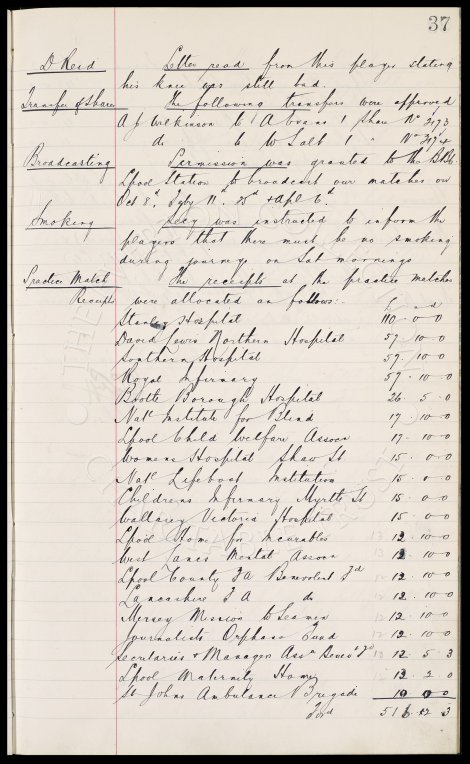 37
D Reid Letter read from this player stating
his knee was still bad.
Transfer of Shares The following transfers were approved
A J Wilkinson to A Evans 1 Share No 2173
do to W Salt 1 " No 2174
Broadcasting Permission was granted to the BBC
Lpool Station to broadcast our matches on
Oct 8, 11th 25th & Apl 6th
Smoking Secy was instructed to inform the
players that there must be no smoking
during journeys on Sat mornings
Practice Match The receipts at the practice matches
Receipts were allocated as follows:- £ s d
Stanley Hospital 110 0 0
David Lewis Northern Hospital 57 10 0
Southern Hospital 57 10 0
Royal Infirmary 57 10 0
Bootle Borough Hospital 26 5 0
Natl Institute for Blind 17 10 0
Lpool Child Welfare Assocn 17 10 0
Womens Hospital Shaw St 15 0 0
Natl Lifeboat Institution 15 0 0
Childrens Infirmary Myrtle St 15 0 0
Wallasey Victoria Hospital 15 0 0
Lpool Home for Incurables 12 10 0
West Lancs Mental Assocn 12 10 0
Lpool County FA Benevolent Fd 12 10 0
Lancashire FA do 12 10 0
Mersey Mission to Seamen 12 10 0
Journalists Orphan Fund 12 10 0
Secretaries & Managers Assn Benevt Fd 12 5 3
Lpool Maternity Home 12 2 0
St Johns Ambulance Brigade 10 0 0
Ford 516 12 3